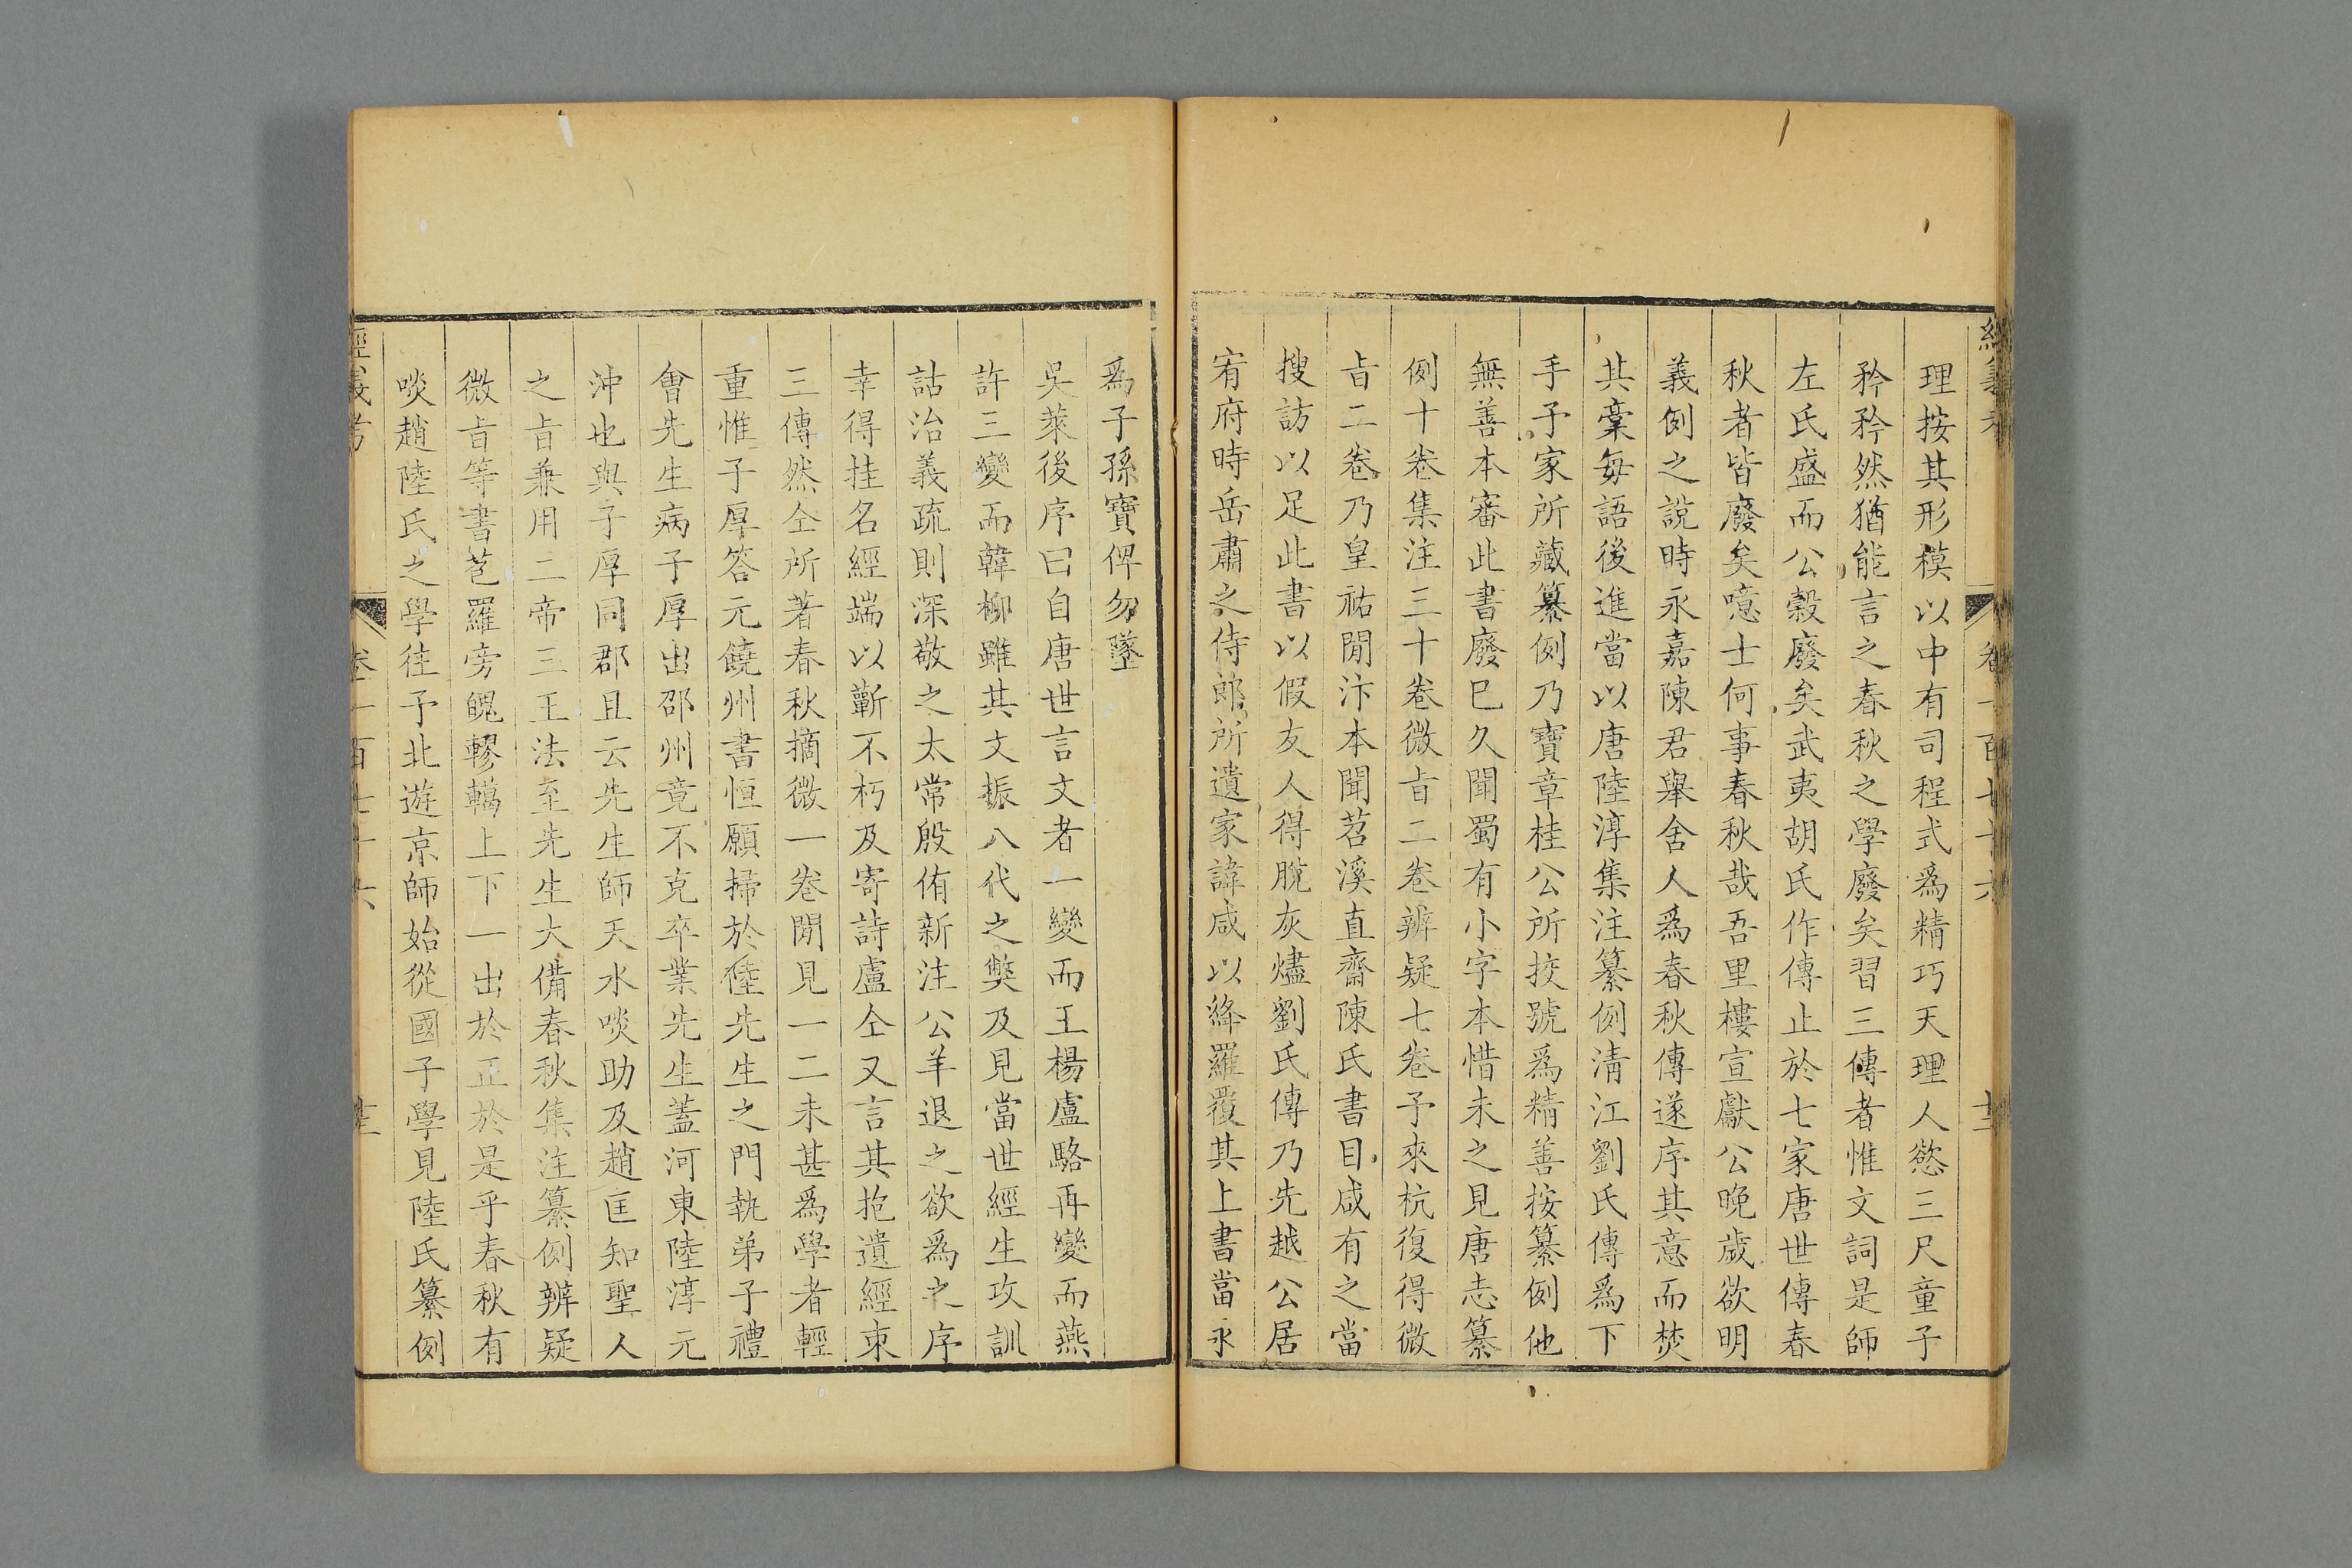 理按其形模以中有司程式爲精巧天理人慾三尺童子
矜矜然猶能言之春秋之學廢矣習三傳者惟文詞是師
左氏盛而公榖廢矣武夷胡氏作傳止於七家唐世傳春
秋者皆廢矣噫士何事春秋哉吾里樓宣獻公晚歲欲明
義例之說時永嘉陳君舉舍人爲春秋傳遂序其意而焚
其稾每語後進當以唐陸淳集注纂例淸江劉氏傳爲下
手予家所藏纂例乃寶章桂公所挍號爲精善按纂例他
無善本審此書廢巳久聞蜀有小字本惜未之見唐志纂
例十卷集注三十卷微旨二卷辨疑七卷予來杭復得微
旨二卷乃皇祐閒汴本聞苕溪直齋陳氏書目咸有之當
搜訪以足此書以假友人得脫灰燼劉氏傳乃先越公居
宥府時岳肅之侍郎所遺家諱咸以絳羅覆其上書當永
爲子孫寶俾勿墜
吳萊後序曰自唐世言文者一變而王楊盧駱再變而燕
許三變而韓柳雖其文振八代之獘及見當世經生攻訓
詁治義疏則深敬之太常殷侑新注公羊退之欲爲之序
幸得挂名經端以蘄不朽及寄詩盧仝又言其抱遺經束
三傳然仝所著春秋摘微一卷閒見一二未甚爲學者輕
重惟子厚答元饒州書恒願掃於陸先生之門執弟子禮
會先生病子厚出邵州竟不克卒業先生蓋河東陸淳元
沖也與子厚同郡且云先生師天水啖助及趙匡知聖人
之旨兼用二帝三王法至先生大備春秋集注纂例辨疑
微旨等書苞羅旁魄轇轕上下一出於正於是乎春秋有
啖趙陸氏之學往予北遊京師始從國子學見陸氏纂例
經義考
卷一百七十六